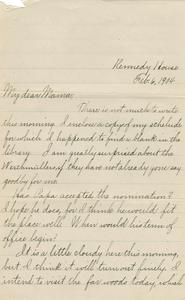 Kennedy House
Feb. 6, 1904
My dear Mama,
There is not much to write
this morning. I inclose a copy of my schedule
for which I happened to find a blank in the
library. I am greatly surprised about the
if they have not already gone say
goodby for me.
Has Papa accepted the nomination?
I hope he does, for I think he would fit
the place well. When would his term of
office begin?
It is a little cloudy here this morning
but I think it will turn out finely. I
intend to visit the woods today, which